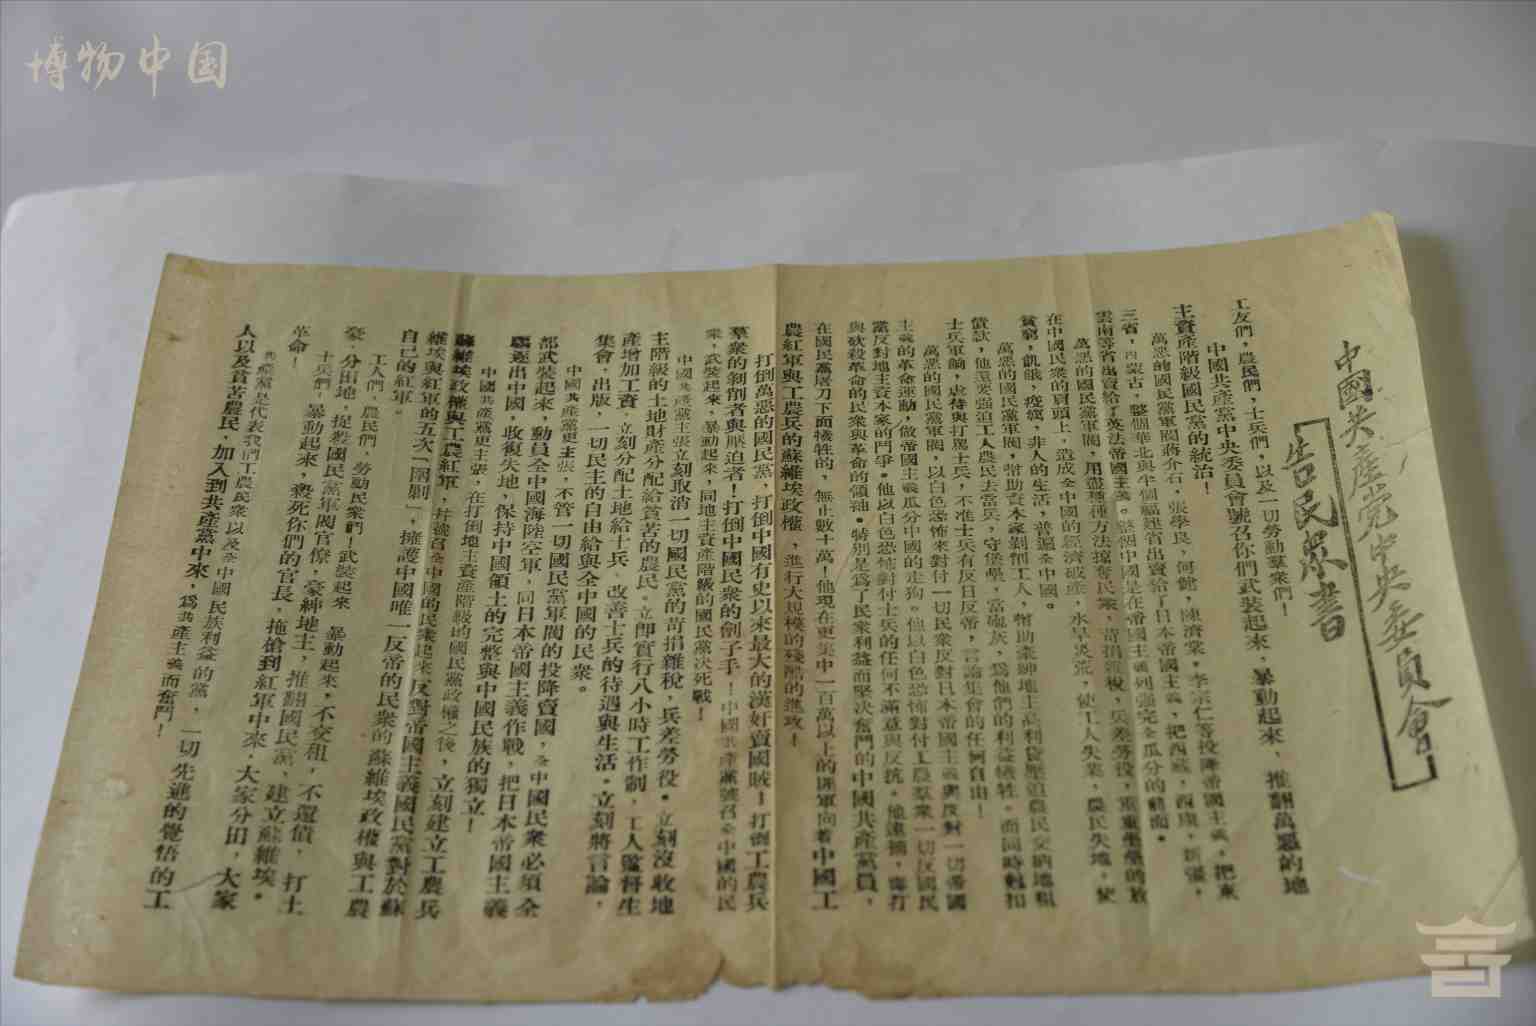 博物中国
中國共產党中央委員會
告民眾書
工友們，農民們，士兵們，以及一切勞動羣衆們！
中國共產黨中央委員會號召你們武装起來，暴動起來，推翻萬惡的地
主資產階級國民黨的統治！
萬惡的國民黨軍閥蔣介石，張學良，何鍵，陳濟棠，李宗仁等投降帝國主義，把東
三省，內蒙古，整個華北與半個福建省出賣給了日本帝國主義，把西藏，西康，新疆，
雲南等省出賣給了英法帝國主義。整個中國是在帝國主義列强完全瓜分的前面。
萬惡的國民黨軍閥，用盡種種方法搶奪民衆，苛捐雜稅，兵差勞役，重重壘壘的放
在中國民衆的肩頭上，造成全中國的經濟破產，水旱災荒，使工人失業，農民失地，使
貧窮，飢餓，疫癘，非人的生活，普遍全中國。
萬惡的國民黨軍閥，幇助資本家剝削工人，幇助豪紳地主高利貸壓迫農民交納地租
債欵，他還要强迫工人農民去當兵，守堡壘，當砲灰，爲他們的利益犧牲。而同時尅扣
士兵軍餉，虐待與打罵士兵，不准士兵有反日反帝，言論集會的任何自由！
萬惡的國民黨軍閥，以白色恐怖來對付一切民衆反對日本帝國主義與反對一切帝國
主義的革命運動，做帝國主義瓜分中國的走狗。他以白色恐怖對付工農羣衆一切反國民
黨反對地主資本家的鬥爭。他以白色恐怖對付士兵的任何不滿意與反抗。他逮捕，毒打
與砍殺革命的民衆與革命的領袖。特別是爲了民衆利益而堅決奮鬥的中國共產黨員，
在國民黨屠刀下面犧牲的，無止數十萬！他現在更集中一百萬以上的匪軍向着中國工
農紅軍與工農兵的蘇維埃政權，進行大規模的殘酷的進攻！
打倒萬惡的國民黨，打倒中國有史以來最大的漢奸賣國賊！打倒工農兵
羣衆的剝削者與壓迫者！打倒中國民衆的劊子手！中國共產黨號召全中國的民
衆，武裝起來，暴動起來，同地主資產階級的國民黨决死戰！
中國共產黨主張立刻取消一切國民黨的苛捐雜稅，兵差勞役。立刻沒收地
主階級的土地財產分配給貧苦的農民。立卽實行八小時工作制，工人監督生
產增加工資，立刻分配土地給士兵，改善士兵的待遇與生活。立刻將言論，
集會，出版，一切民主的自由給與全中國的民衆。
中國共產黨更主張，不管一切國民黨軍閥的投降賣國，全中國民衆必須全
部武裝起來，動員全中國海陸空軍，同日本帝國主義作戰，把日本帝國主義
驅逐出中國，收復失地，保持中國領土的完整與中國民族的獨立！
中國共產黨更主張，在打倒地主資產階級的國民黨政權之後，立刻建立工農兵
蘇維埃政權與工農紅軍，并號召全中國的民衆起來反對帝國主義國民黨對於蘇
維埃與紅軍的五次「圍剿」，擁護中國唯一反帝的民衆的蘇維埃政權與工農
自己的紅軍。
工人們，農民們，勞動民衆們！武裝起來，暴動起來，不交租，不還債，打土
豪，分田地，捉殺國民黨軍閥官僚，豪紳地主，推翻國民黨，建立蘇維埃。
士兵們！暴動起來，殺死你們的官長，拖槍到紅軍中來，大家分田，大家
革命！
共產黨是代表我們工農民衆以及全中國民族利益的黨，一切先進的覺悟的工
人以及貧苦農民，加入到共產黨中來，爲共產主義而奮鬥！